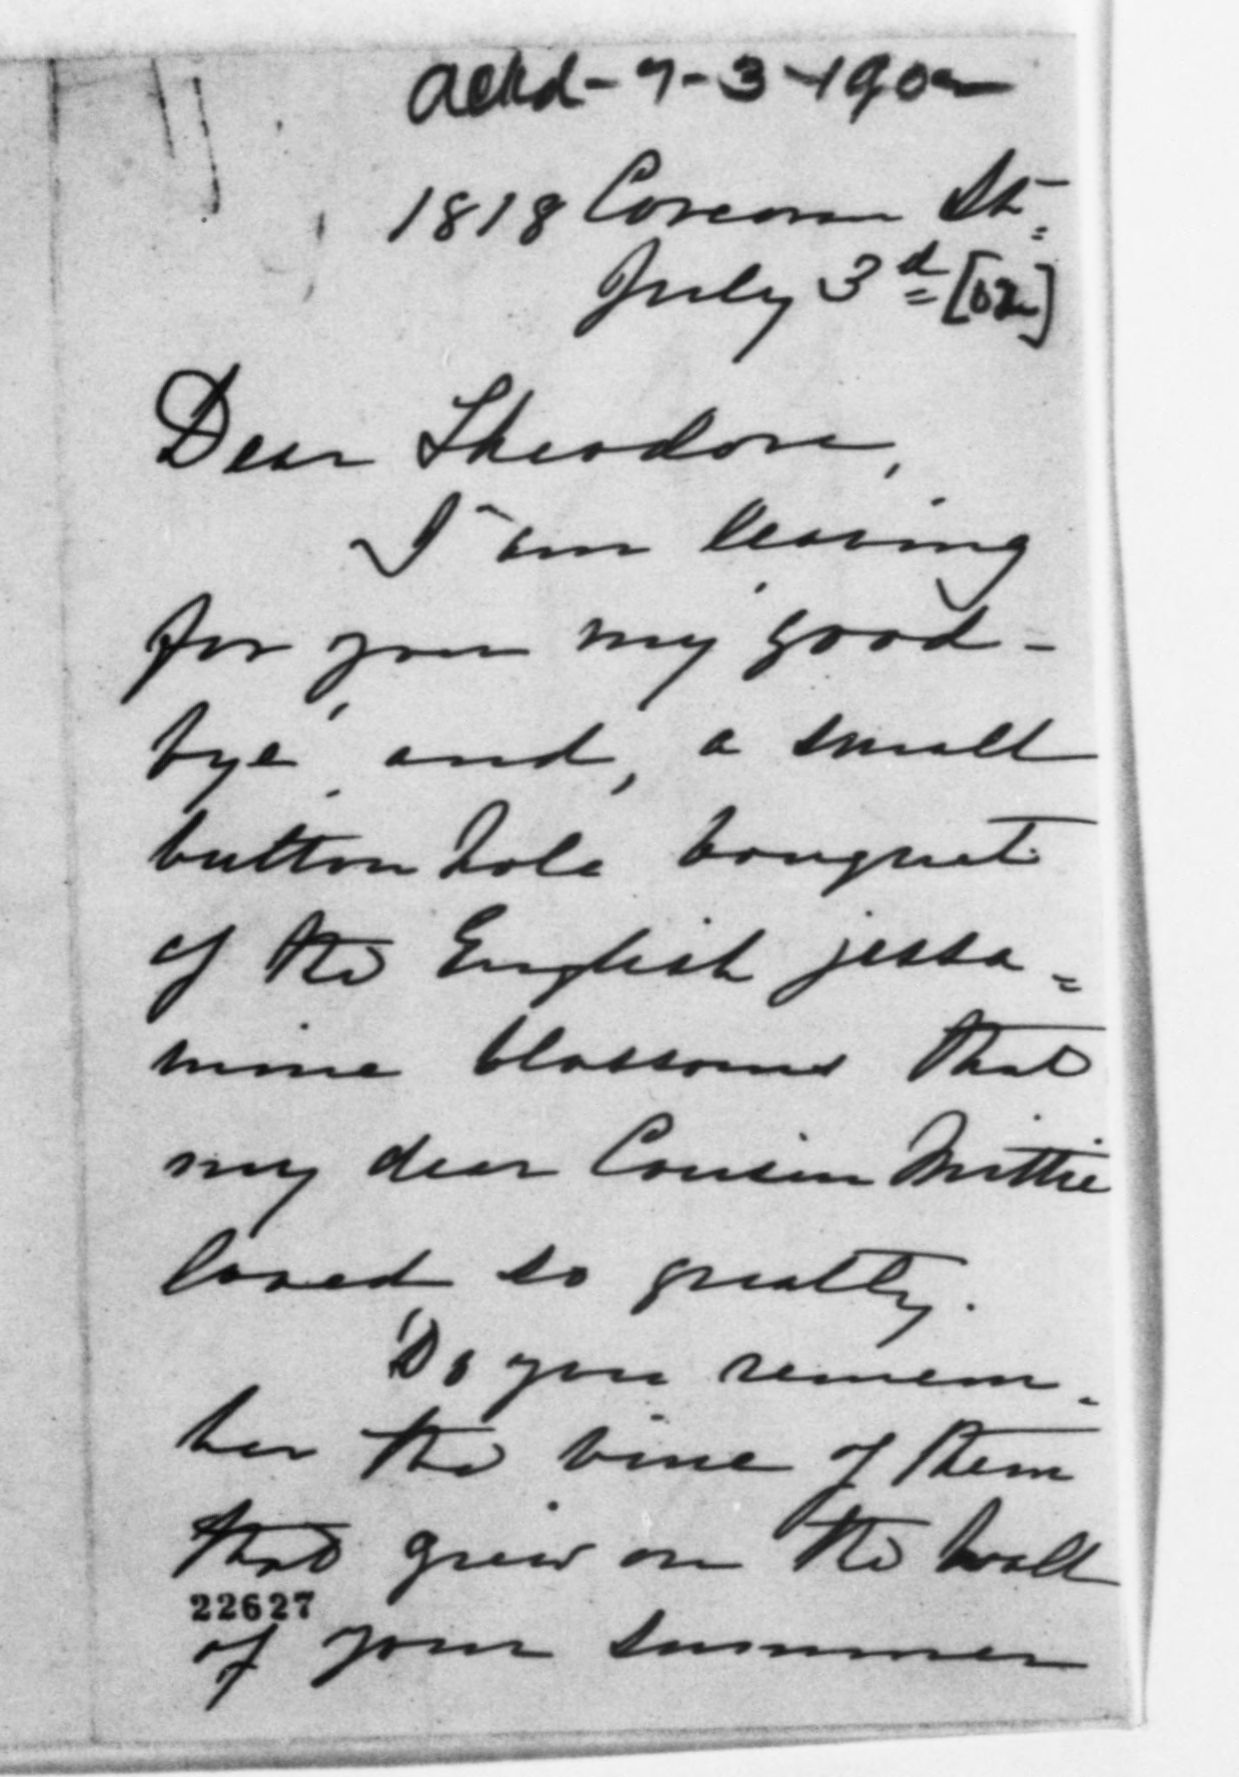 Ackd-7-3-1902
1818 Corcoran St.
July 3d [02]
Dear Theodore,
I am leaving
for you my good-
bye, and, a small
button hole bouquet
of the English jessa=
mine blossoms that
my dear Cousin Mittie
loved so greatly.
Do you remem-
ber the vine of them
that grew on the wall
22627
of your summer